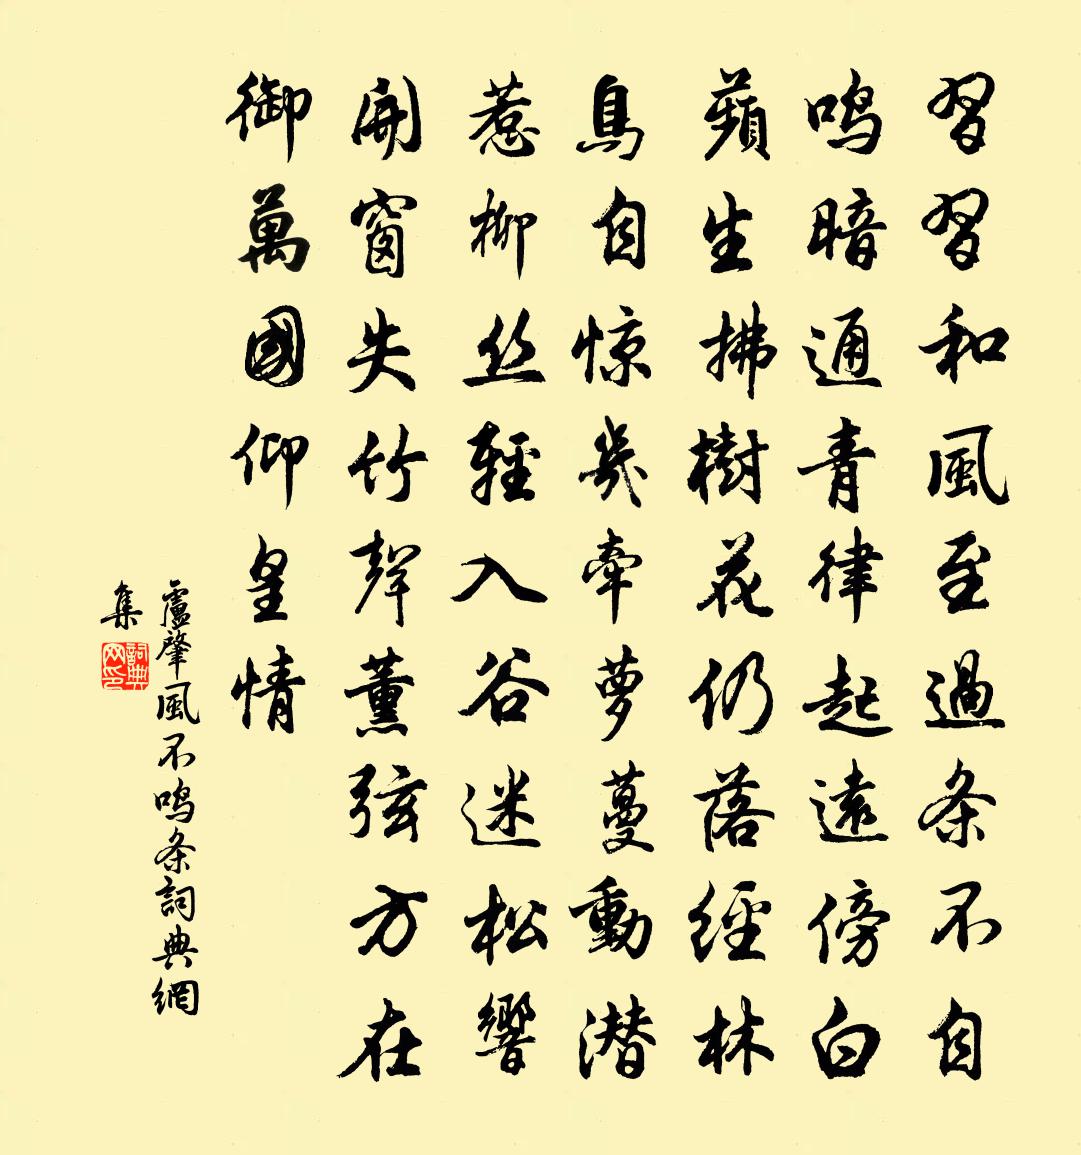 習習和風至過条不自
鸣暗通青律起遠傍白
蘋生拂樹花仍落經林
鳥自惊幾牽萝蔓動潜
惹柳丝輕入谷迷松響
開窗失竹聲薰弦方在
御萬國仰皇情
盧肇風不鸣条詞典網
集
詞典网印